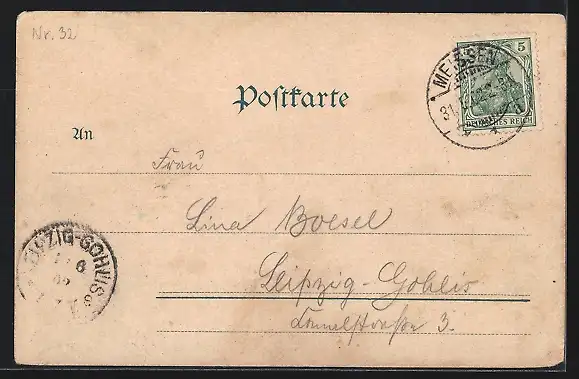 Nr. 32
5
MEISSEN
31.
DEUTSCHES REICH
Postkarte
An
Frau
Lina Boesel
Leipzig-Gohlis
3.
LEIPZIG-GOHLIS
8